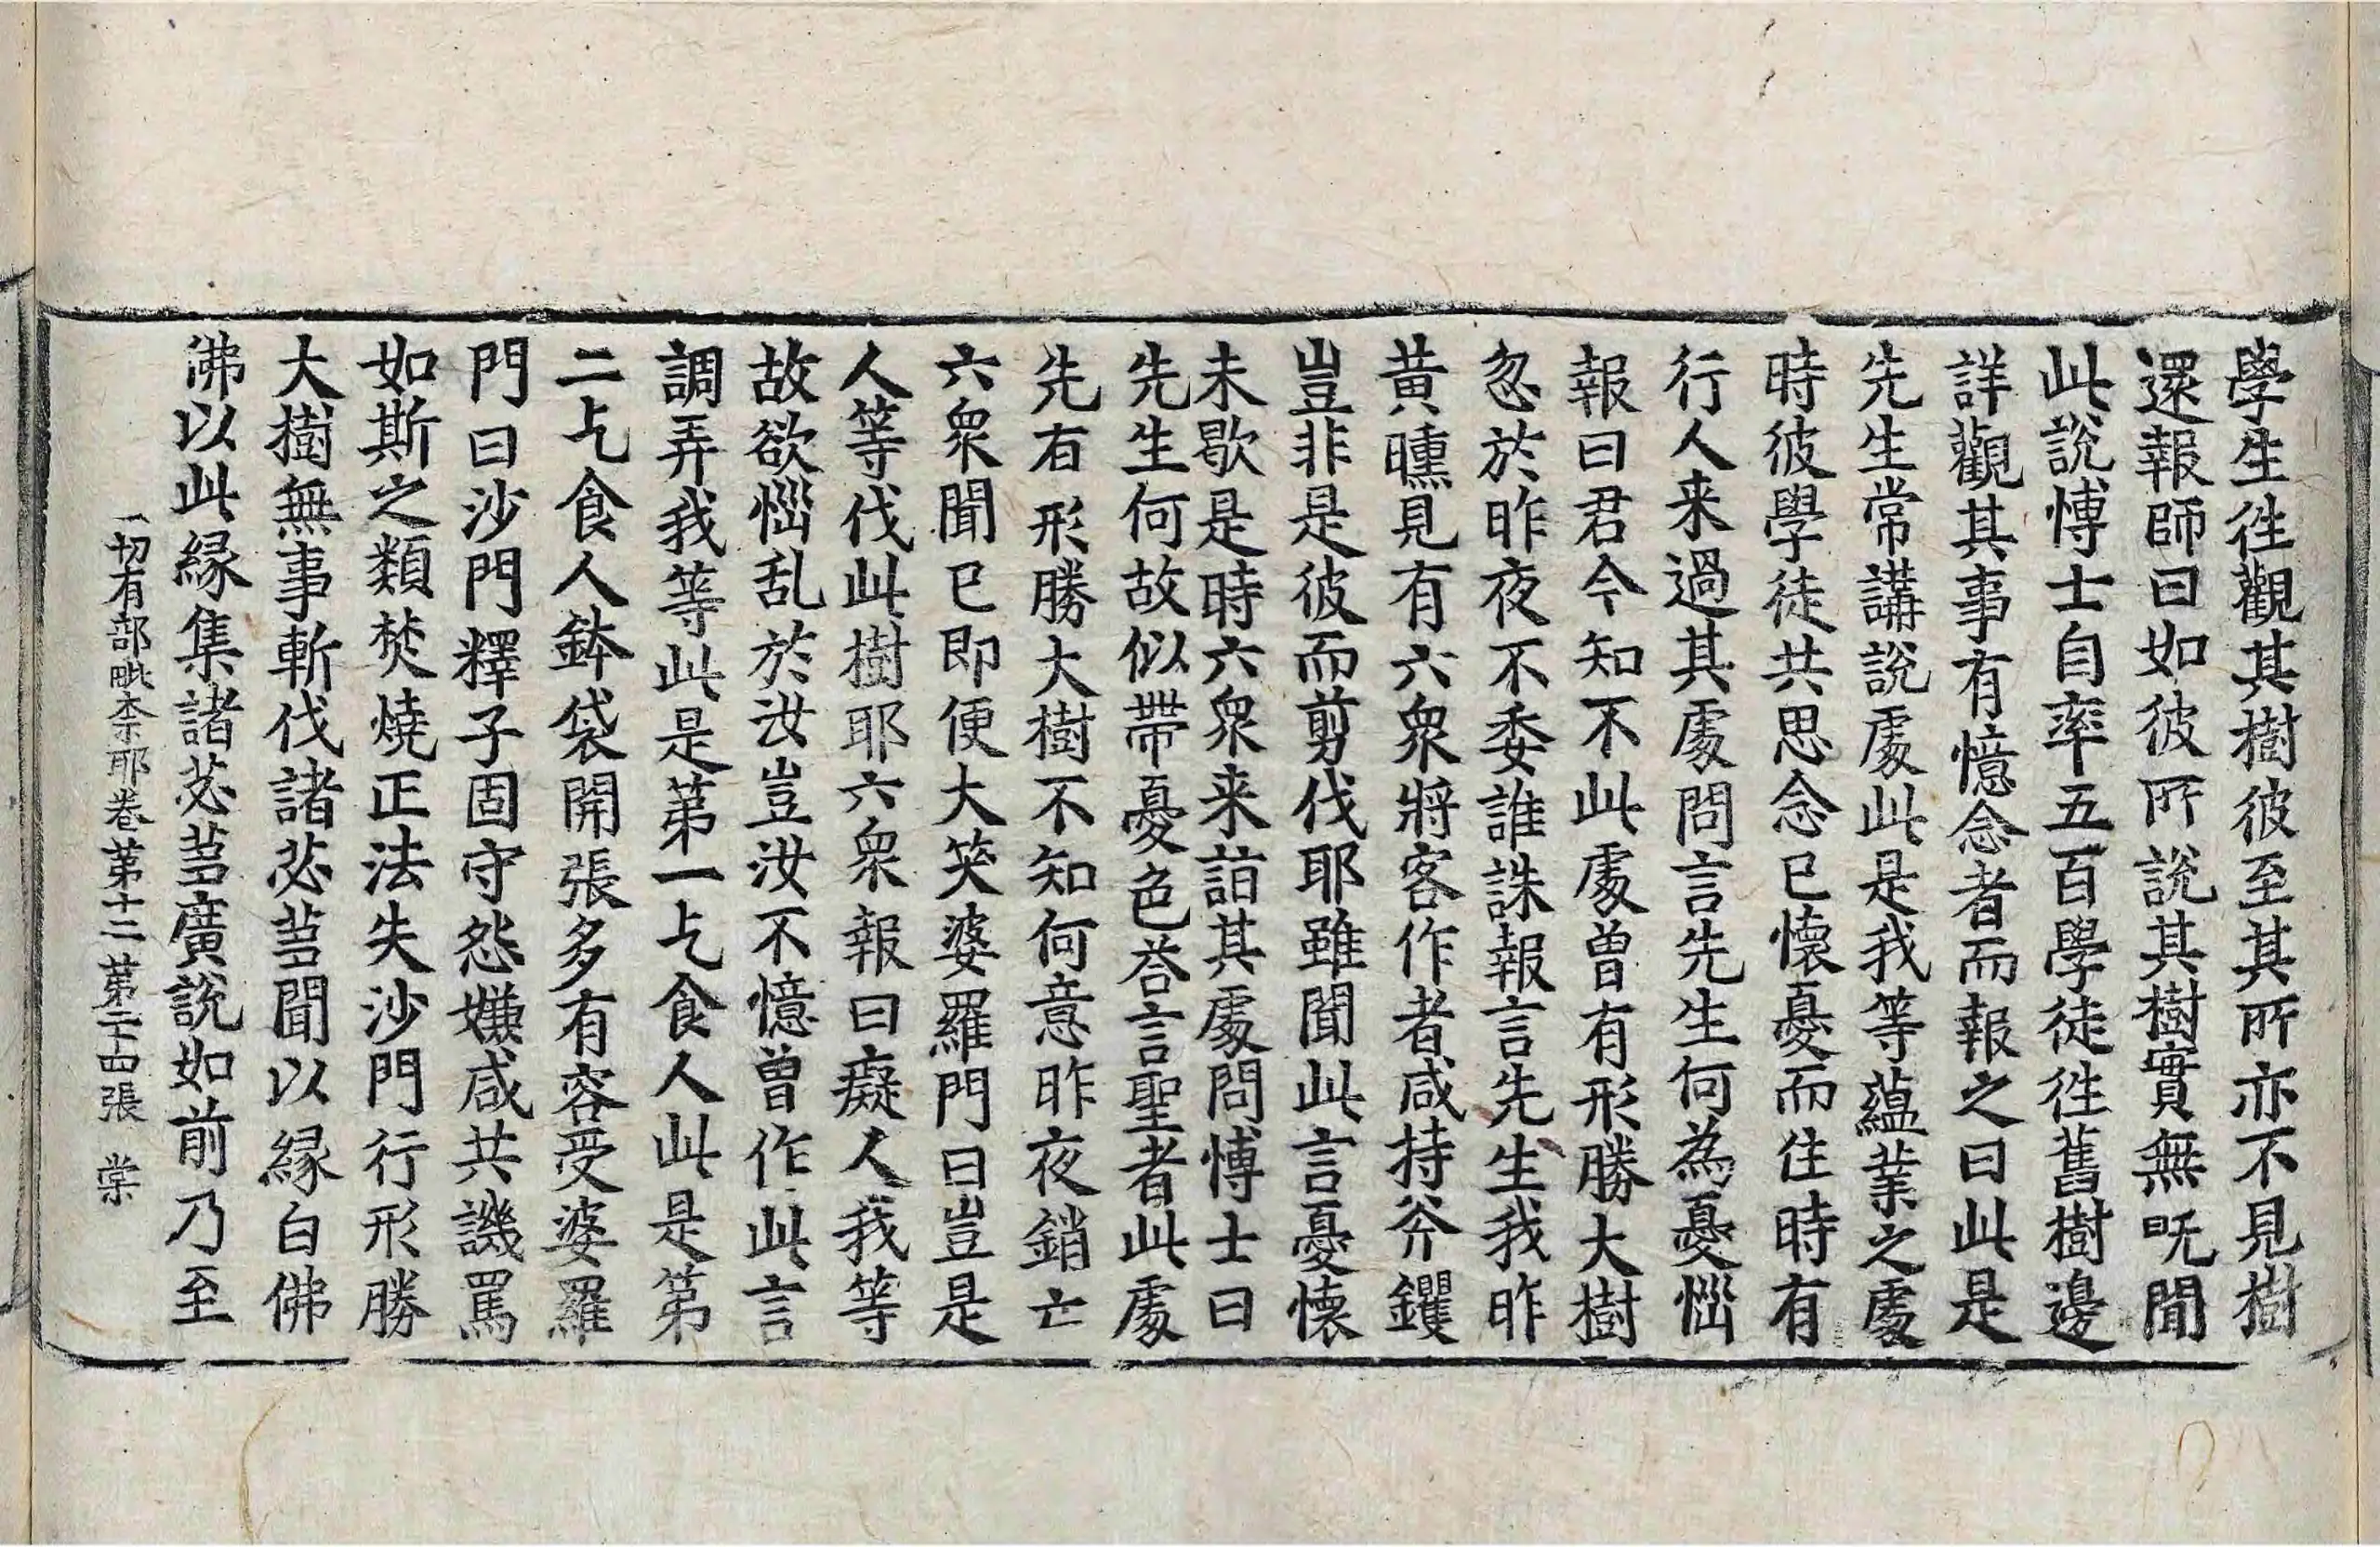 學生往觀其樹彼至其所亦不見樹
還報師曰如彼所說其樹實無旣聞
此說愽士自率五百學徒往舊樹邊
詳觀其事有憶念者而報之曰此是
先生常講說處此是我等蘊業之處
時彼學徒共思念已懷憂而住時有
行人来過其處問言先生何為憂惱
報曰君今知不此處曾有形勝大樹
忽於昨夜不委誰誅報言先生我昨
黄曛見有六衆將客作者咸持斧钁
豈非是彼而剪伐耶雖聞此言憂懷
未歇是時六衆来詣其處問愽士曰
先生何故似帶憂色荅言聖者此處
先有形勝大樹不知何意昨夜銷亡
六衆聞已即便大笑婆羅門曰豈是
人等伐此樹耶六衆報曰癡人我等
故欲惱乱於汝豈汝不憶曾作此言
調弄我等此是第一乞食人此是第
二乞食人鉢袋開張多有容受婆羅
門曰沙門釋子固守怨嫌咸共譏罵
如斯之類焚燒正法失沙門行形勝
大樹無事斬伐諸苾蒭聞以縁白佛
佛以此縁集諸苾蒭廣說如前乃至
一切有部毗奈耶卷第十二 第二十四張 棠